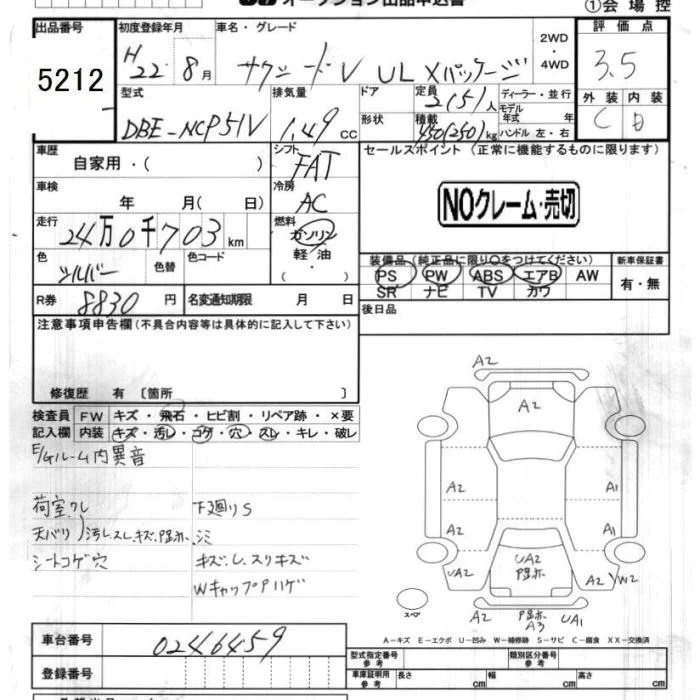 オークション出品申込書
①会場控
出品番号 初度登録年月 車名・グレード 2WD・4WD 評価点
5212 H22.8月 サクシードV UL Xパッケージ 3.5
型式 排気量 ドア 定員 2(5)人 ディーラー・並行 外装 内装
DBE-NCP51V 1.49cc 形状 積載 450(250)kg モデル年式 年式 C D
ハンドル 左・右
車歴 シフト セールスポイント(正常に機能するものに限ります)
自家用・( ) FAT
車検 冷房
年 月(日) AC NOクレーム・売切
走行 燃料
24万0千703km ガソリン
軽油
( ・ )
色 色替 色コード 装備品(純正品に限り〇をつけてください) 新車保証書
シルバー PS PW ABS エアB AW 有・無
SR ナビ TV カワ
R券 8830円 名変通知期限 月 日 後日品
注意事項申告欄(不具合内容等は具体的に記入して下さい)
修復歴 有 〔箇所 〕
検査員 FW キズ・飛石・ヒビ割・リペア跡・×要
記入欄 内装 キズ・汚レ・コゲ・穴・スレ・キレ・破レ
E/Gルーム内異音
荷室クレ 下廻りS
天バリ)汚レスレキズ、
シートコゲ穴 キズ
WキャップPハゲ
A2
A2
A2 A1
A2 A1
UA2 UA2 A2 W2
A2 A3 UA1
スペア
A-キズ E-エクボ U-凹み W-補修跡 S-サビ C-腐食 XX-交換済
車台番号 0246459
型式指定番号 参考 類別区分番号 参考
登録番号 車庫証明用 参考 長さ cm 幅 cm 高さ cm